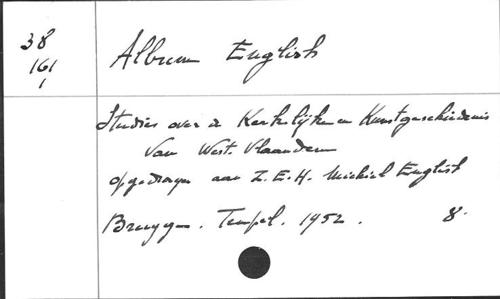 38
161
1
Album English
Studies over de Kerkelijke en Kunstgeschiedenis
van West-Vlaanderen
opgedragen aan Z.E.H. Michiel English
Brugge. Tempel. 1952. 8.